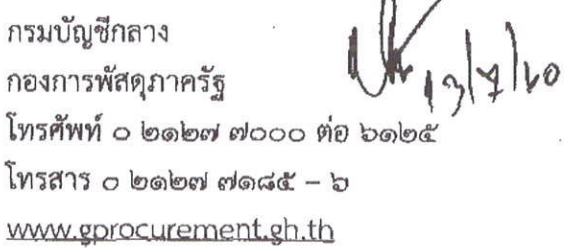 กรมบัญชีกลาง
กองการพัสดุภาครัฐ
13/7/60
โทรศัพท์ ๐ ๒๑๒๗ ๗๐๐๐ ต่อ ๖๑๒๕
โทรสาร ๐ ๒๑๒๗ ๗๑๘๕ – ๖
www.gprocurement.gh.th